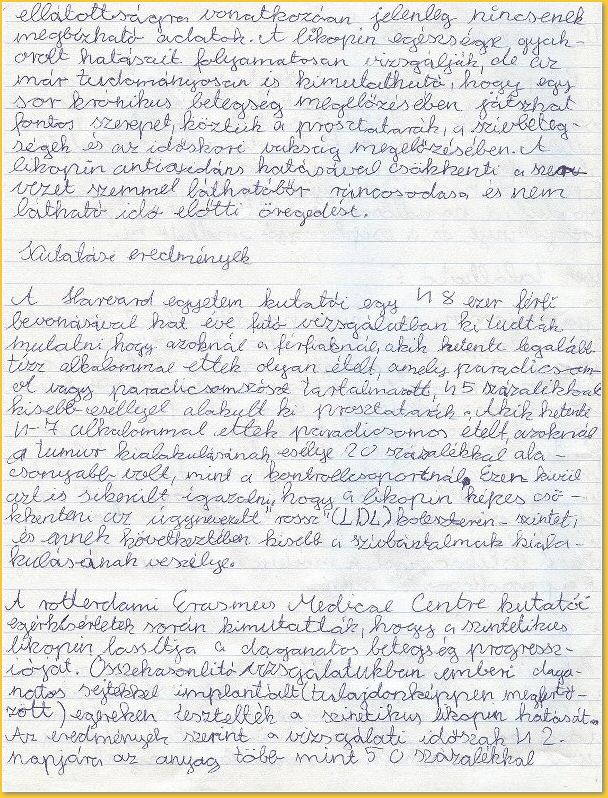 ellátottságra vonatkozóan jelenleg nincsenek
megbízható adatok. A likopin egészségre gyak-
orolt hatásait folyamatosan vizsgálják, de az
már tudományosan is kimutatható, hogy egy
sor krónikus betegség megelőzésében játszhat
fontos szerepet, köztük a prosztatarák, a szívbeteg-
ségek és az időskori vakság megelőzésében. A
likopin antioxidáns hatásával csökkenti a szer
vezet szemmel láthatóbőr ráncosodása és nem
látható idő előtti öregedést.
Kutatási eredmények
A Harvard egyetem kutatói egy 48 ezer férfi
bevonásával hat éve futó vizsgálatban ki tudták
mutatni hogy azoknál a férfiaknál, akik hetente legalább
tísz alkalommal ettek olyan ételt, amely paradicsom
ot vagy paradicsomszószt tartalmazott, 45 százalékkal
kisebb eséllyel alakult ki prosztatarák. Akik hetente
4-7 alkalommal ettek paradicsomos ételt, azoknál
a tumor kialakulásának esélye 20 százalékkal ala-
csonyabb volt, mint a kontrollcsoportnál. Ezen kívül
azt is sikerült igazolni, hogy a likopin képes csö-
kkenteni az úgynevezett "rossz" (LDL) koleszterin-szintet,
és ennek következtében kisebb a szívbántalmak kiala-
kulásának veszélye.
A rotterdami Erasmus Medical Centre kutatói
egérkísérletek során kimutatták, hogy a szintetikus
likopin lassítja a daganatos betegség progressz-
ióját. Összehasonlító vizsgálatukban emberi daga-
natos sejtekkel implantált (tulajdonképpen megfertő-
zött) egereken tesztelték a szintetikus likopin hatását.
Az eredmények szerint a vizsgálati időszak 42.
napjára az anyag több mint 50 százalékkal